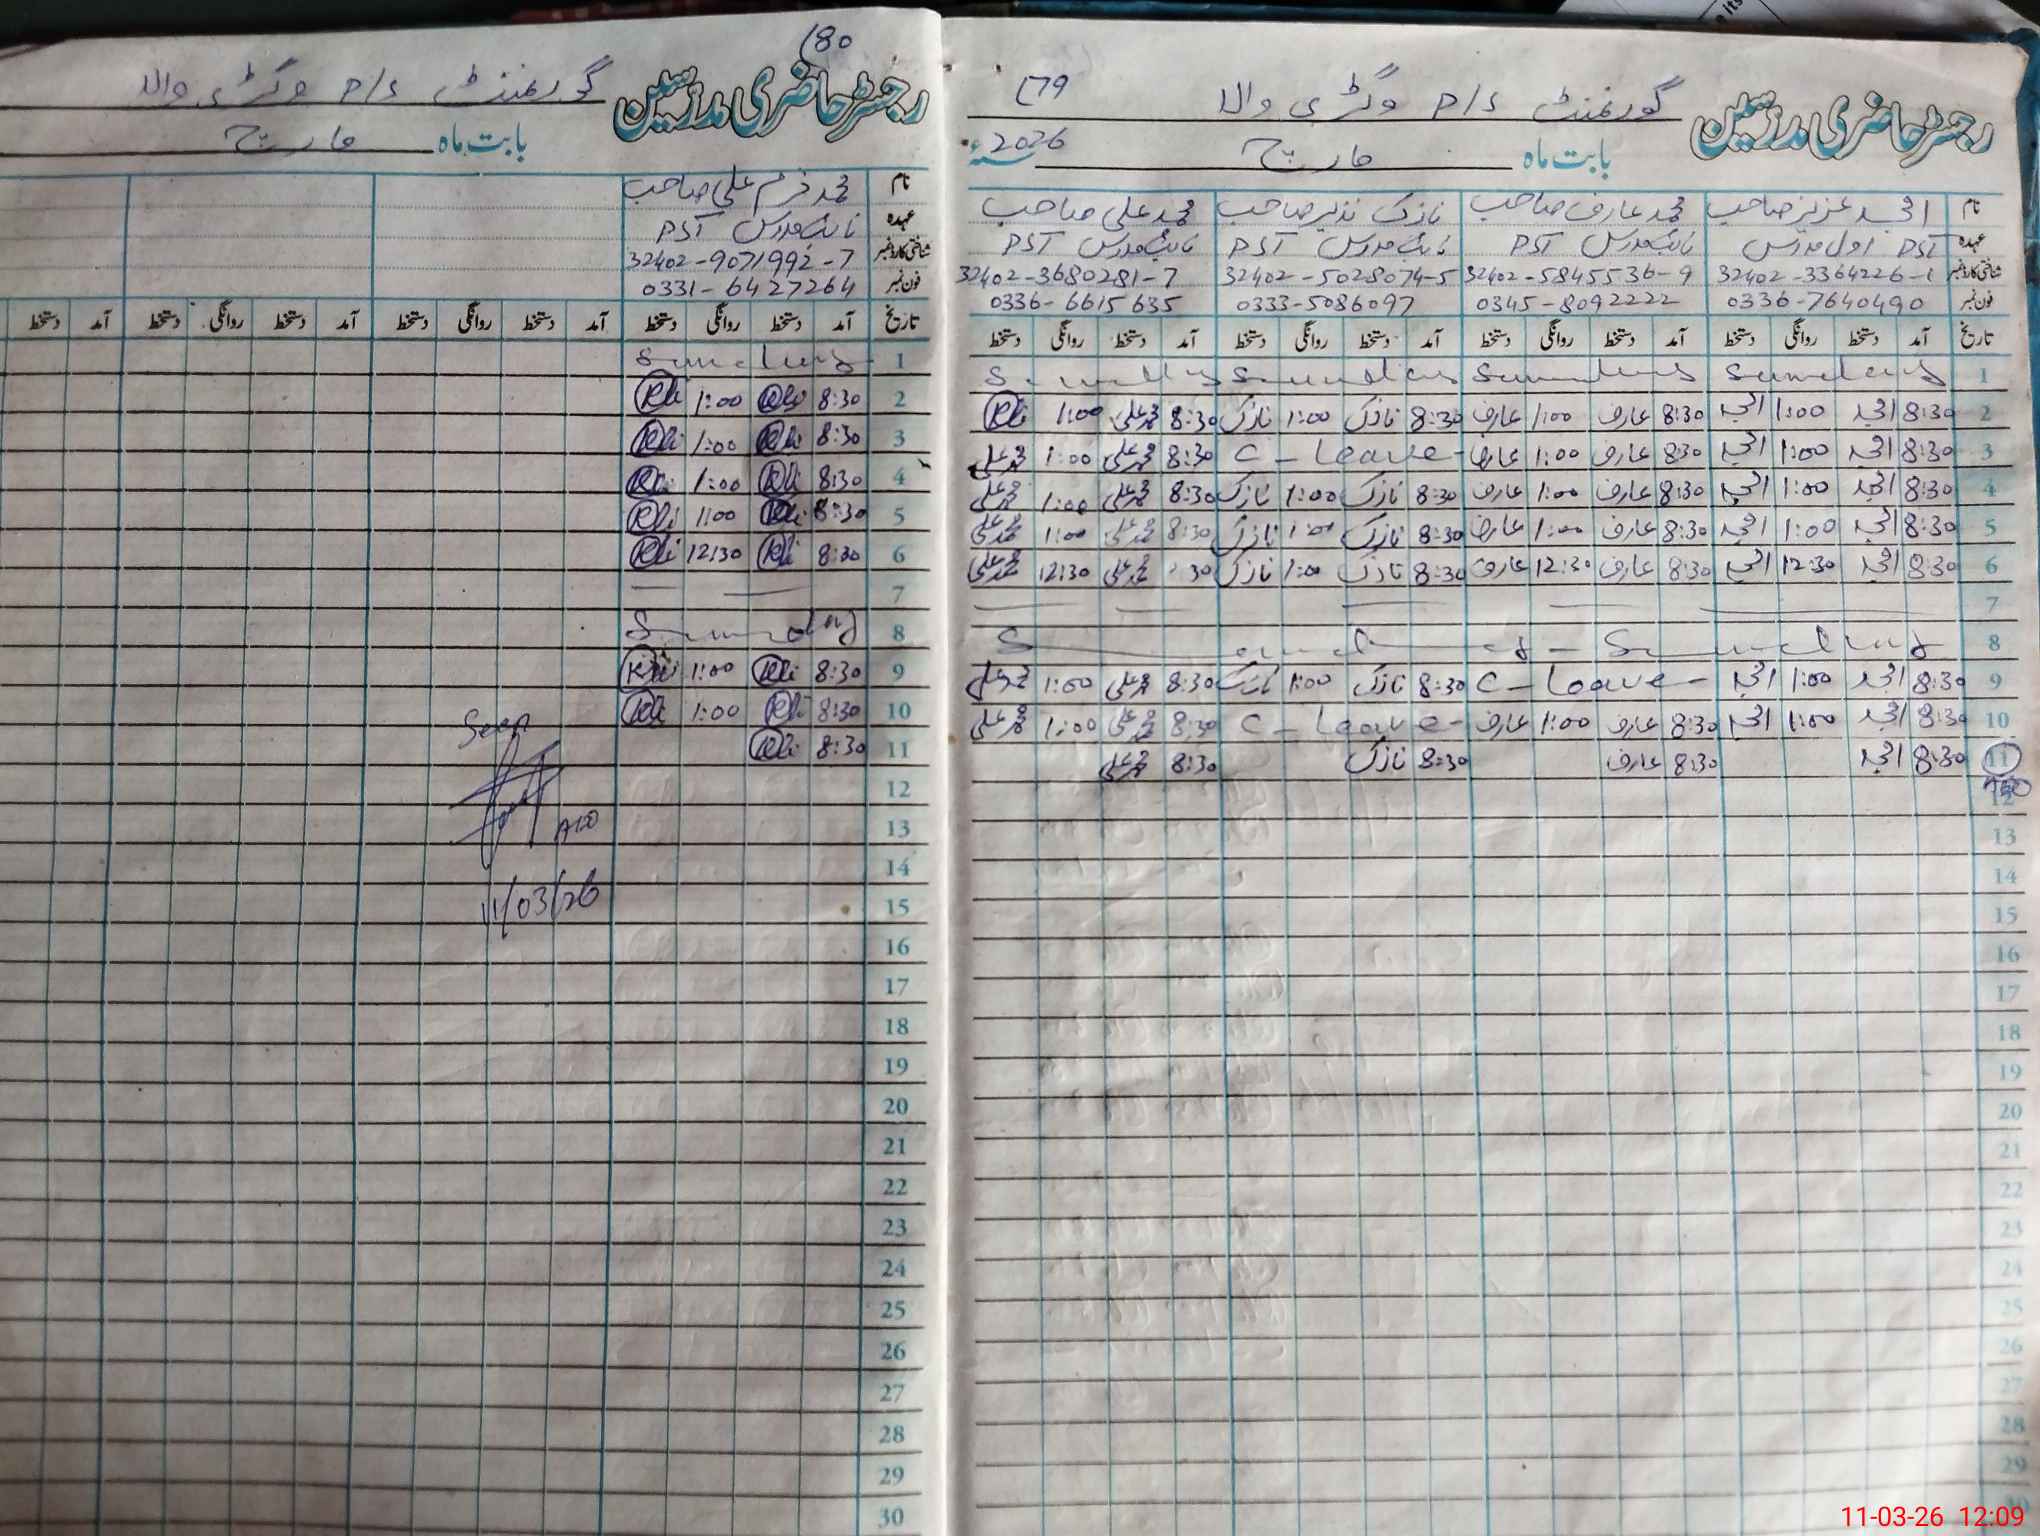 179
رجسٹر حاضری مدرسین گورنمنٹ P/S وگڑی والا
بابت ماہ مارچ سنہ 2026
نام امجد عزیز صاحب محمد عارف صاحب نازک نذیر صاحب محمد علی صاحب
عہدہ PST اول مدرس نائب مدرس PST نائب مدرس PST نائب مدرس PST
شناختی کارڈ نمبر 32402-3364226-1 32402-5845536-9 32402-5028074-5 32402-3680281-7
فون نمبر 0336-7640490 0345-8092222 0333-5086097 0336-6615635
تاریخ آمد دستخط روانگی دستخط آمد دستخط روانگی دستخط آمد دستخط روانگی دستخط آمد دستخط روانگی دستخط
1 Sunday Sunday Sunday Sunday
2 8:30 امجد 1:00 امجد 8:30 عارف 1:00 عارف 8:30 نازک 1:00 نازک 8:30 محمد علی 1:00
3 8:30 امجد 1:00 امجد 8:30 عارف 1:00 عارف C-Leave 8:30 محمد علی 1:00 محمد علی
4 8:30 امجد 1:00 امجد 8:30 عارف 1:00 عارف 8:30 نازک 1:00 نازک 8:30 محمد علی 1:00 محمد علی
5 8:30 امجد 1:00 امجد 8:30 عارف 1:00 عارف 8:30 نازک 1:00 نازک 8:30 محمد علی 1:00 محمد علی
6 8:30 امجد 12:30 امجد 8:30 عارف 12:30 عارف 8:30 نازک 1:00 نازک 30 محمد علی 12:30 محمد علی
7
8 Sunday Sunday
9 8:30 امجد 1:00 امجد C-Leave 8:30 نازک 1:00 نازک 8:30 محمد علی 1:00 محمد علی
10 8:30 امجد 1:00 امجد 8:30 عارف 1:00 عارف C-Leave 8:30 محمد علی 1:00 محمد علی
11 8:30 امجد 8:30 عارف 8:30 نازک 8:30 محمد علی
12
13
14
15
16
17
18
19
20
21
22
23
24
25
26
27
28
29
30
180
رجسٹر حاضری مدرسین گورنمنٹ P/S وگڑی والا
بابت ماہ مارچ
نام محمد خرم علی صاحب
عہدہ نائب مدرس PST
شناختی کارڈ نمبر 32402-9071992-7
فون نمبر 0331-6427264
تاریخ آمد دستخط روانگی دستخط آمد دستخط روانگی دستخط آمد دستخط روانگی دستخط آمد دستخط
1 Sunday
2 8:30 1:00
3 8:30 1:00
4 8:30 1:00
5 8:30 1:00
6 8:30 12:30
7
8 Sunday
9 8:30 1:00
10 8:30 1:00
11 8:30
12
13
14
15
16
17
18
19
20
21
22
23
24
25
26
27
28
29
30
Seen
AEO
11/03/26
11-03-26 12:09